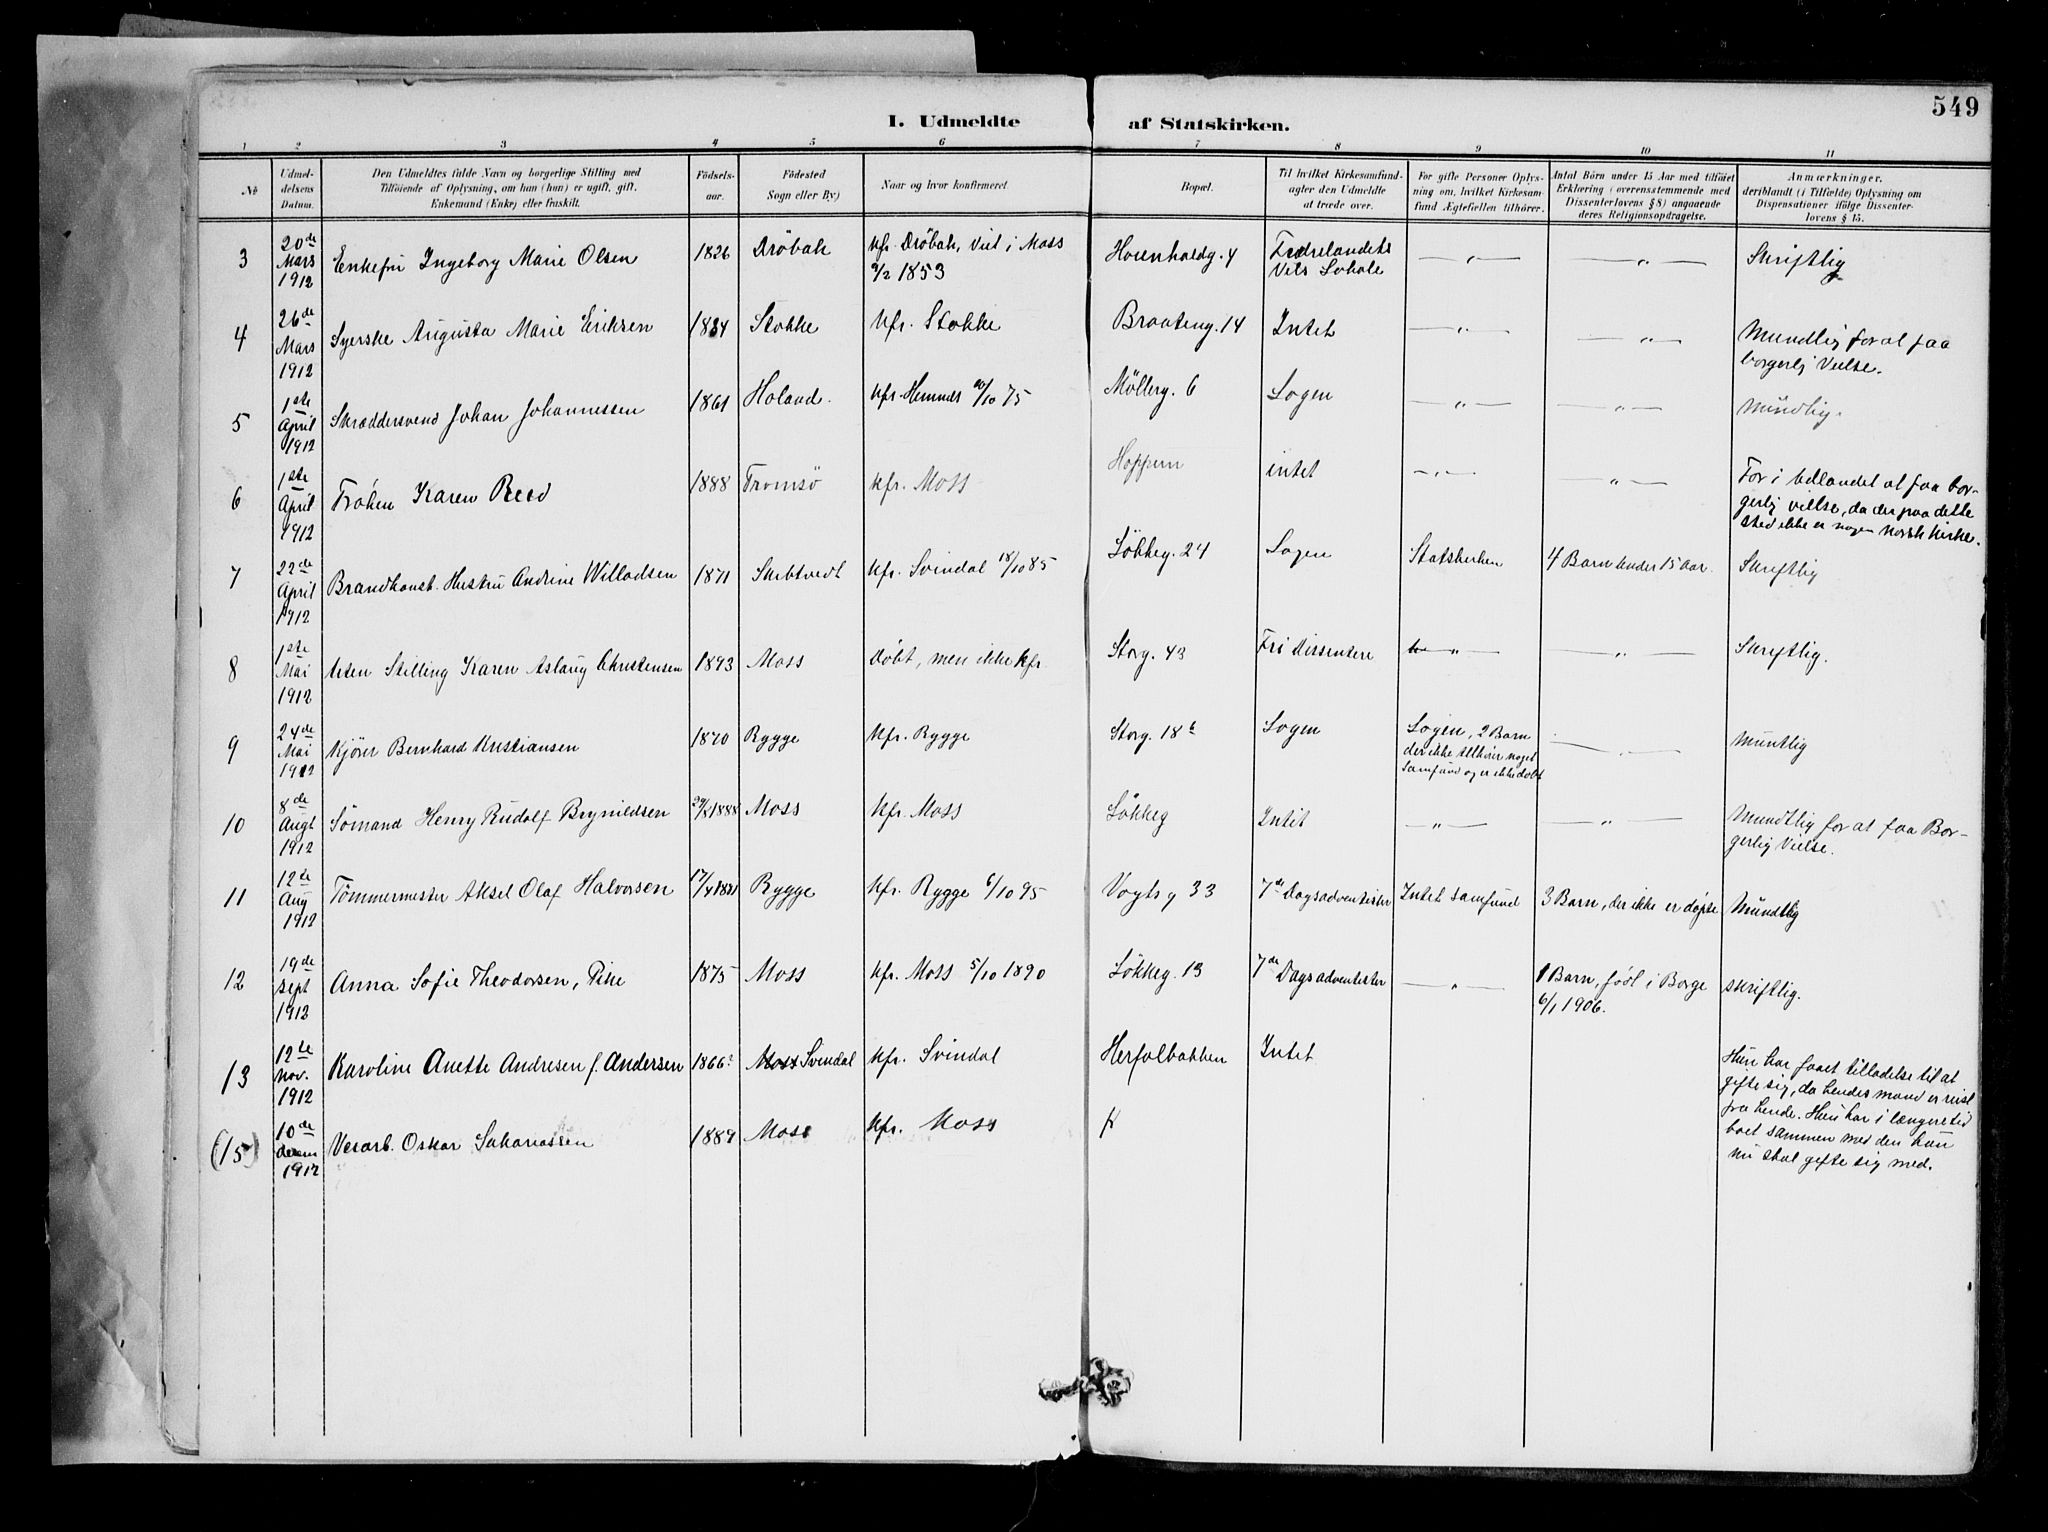 549
I. Udmeldte af Statskirken.
1 2 3 4 5 6 7 8 9 10 11
No
Udmel-
delsens
Datum.
Den Udmeldtes fulde Navn og borgerlige Stilling med
Tilföiende af Oplysning, om han (hun) er ugift, gift,
Enkemand (Enke) eller fraskilt.
Födsels-
aar.
Födested
Sogn eller By)
Naar og hvor konfirmeret.
Bopæl.
Til hvilket Kirkesamfund-
agter den Udmeldte
at træde over.
For gifte Personer Oplys-
ning om, hvilket Kirkesam-
fund Ægtefællen tilhører.
Antal Börn under 15 Aar med tilföiet
Erklæring (overensstemmende med
Dissenterlovens § 8) angaaende
deres Religionsopdragelse.
Anmærkninger,
deriblandt (i Tilfælde) Oplysning om
Dispensationer ifölge Dissenter-
lovens § 15.
3 20de Mars 1912 Enkefru Ingeborg Marie Olsen 1826 Dröbak kfr. Dröbak, viet i Moss
9/2 1853
Fædrelandets
Vels Lokale
— " — — " — Skriftlig
4 26de Mars 1912 Syerske Augusta Marie Eriksen Stokke kfr. Stokke Braateng. 14 Intet — " — — " — Mundlig for at faa
borgerlj Vielse.
5 1ste April 1912 Skræddersvend Johan Johannessen 1861 Höland. kfr. Hemnes /10 75 Möllerg. 6 Logen — " — — " — Mundlig.
6 1ste April 1912 Fröken Karen 1888 Tromsö kfr. Moss Hoppern intet — " — — " — For i Udlandet at faa bor-
gerlig vielse, da der paa dette
sted ikke er nogen norsk kirke.
7 22de April 1912 Brandkonst. Hustru Andrine Willadsen 1871 Skibtvedt kfr. Svindal 18/10 85 Lökkeg. 24 Logen Statskirken 4 Barn under 15 aar. Skriftlig
8 1ste Mai 1912 Uten Stilling Karen Aslaug Christensen 1893 Moss döbt, men ikke kfr. Storg. 43 Fri dissentere — " — — " — Skriftlig.
9 24de Mai 1912 Kjörer Bernhard Kristiansen 1870 Rygge kfr. Rygge Storg. 18b Logen Logen, 2 Barn
der ikke tilhörer noget
samfund og er ikke döbt
— " — Muntlig
10 8de Augt 1912 Sömand Henry Rudolf Brynildsen 1888 Moss kfr. Moss Lökkeg Intet — " — — " — Mundtlig for at faa Bor-
gerlig Vielse.
11 12te Aug 1912 Tömmermester Aksel Olaf Halvorsen Rygge kfr. Rygge 6/10 95 Vogtsg 33 7de Dagsadventister Intet samfund 3 Barn, der ikke er döpte Mundtlig
12 19de Sept 1912 Anna Sofie Theodorsen, Pike 1875 Moss kfr. Moss 5/10 1890 Lökkeg. 13 7de Dagsadventister — " — 1 Barn, födt i Borge
6/1 1906.
skriftlig.
13 12te Nov. 1912 Karoline Anette Andresen f. Andersen 1866 Moss Svindal kfr. Svindal Herfolbakken Intet Hun har faaet tilladelse til at
gifte sig, da hendes mand er reist
fra hende. Hun har i længre tid
boet sammen med den hun
nu skal gifte sig med.
(15) 10de decem 1912 Oskar 1889 Moss kfr. Moss